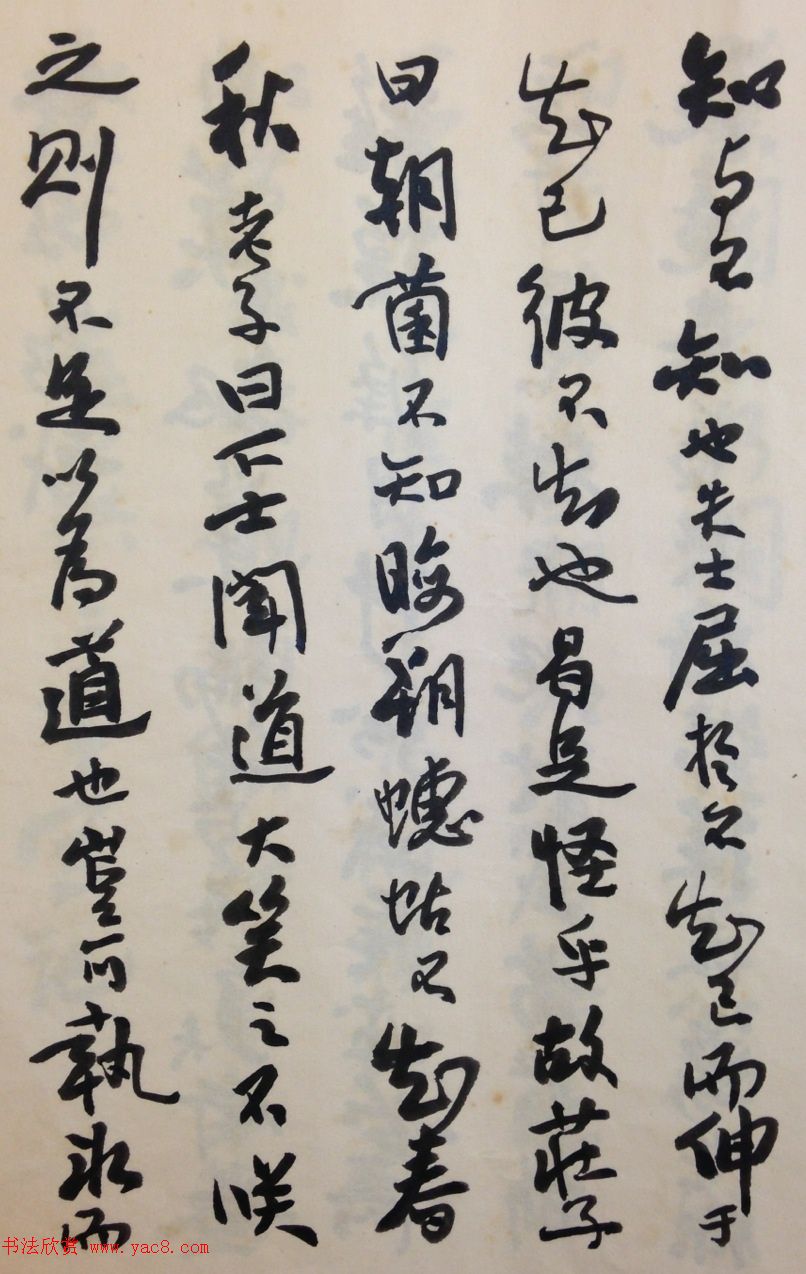 知与不知也夫士屈於不知己而伸于
知己彼不知也曷足怪乎故莊子
曰朝菌不知晦朔蟪蛄不知春
秋老子曰下士聞道大笑之不咲
之则不足以為道也豈可執冰而
书法欣赏 www.yac8.com